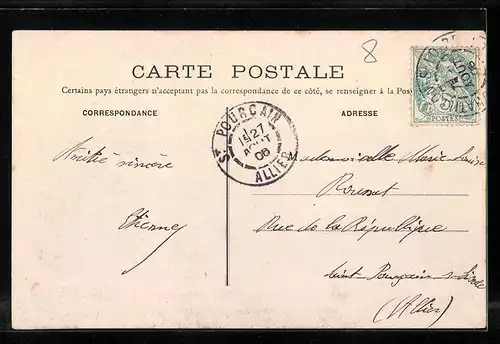 8
CARTE POSTALE
Certains pays étrangers n'acceptent pas la correspondance de ce côté, se renseigner à la Poste
CORRESPONDANCE
ADRESSE
POSTES
ST POURCAIN
27
AOUT
06
ALLIER
Amitié sincère
Etienne
Mademoiselle Marie Louise
Rue de la République
Saint Pourçain s. Sioule
(Allier)